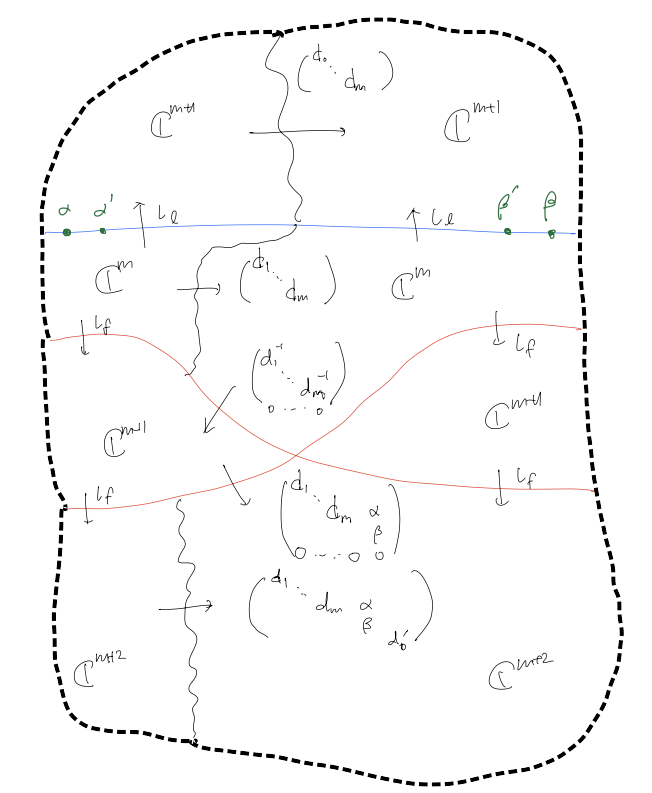 (d₀ ⋱ dₘ)
ℂ^{m+1} ℂ^{m+1}
α α' ι_ℓ ι_ℓ β' β
ℂ^m (d₁ ⋱ dₘ) ℂ^m
ι_f ι_f
(d₁⁻¹ ⋱ dₘ⁻¹
0 --- 0)
ℂ^{m+1} ℂ^{m+1}
ι_f ι_f
(d₁ ⋱ dₘ α
β
0 --- 0 0)
(d₁ ⋱ dₘ α
β
d₀')
ℂ^{m+2} ℂ^{m+2}